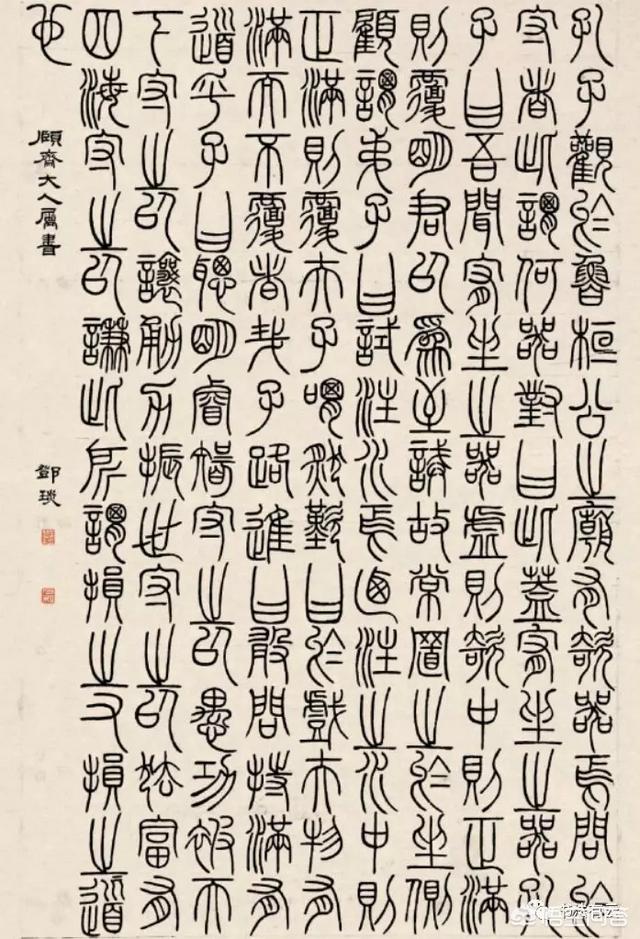 孔子觀於魯桓公之廟有欹器焉問於
守者此謂何器對曰此蓋宥坐之器孔
子曰吾聞宥坐之器虛則欹中則正滿
則覆明君以為至誡故常置之於坐側
顧謂弟子曰試注水焉迺注之水中則
正滿則覆夫子喟然歎曰於戲夫物有
滿而不覆者哉子路進曰敢問持滿有
道乎子曰聰明睿智守之以愚功被天
下守之以讓勇力振世守之以怯富有
四海守之以謙此所謂損之又損之道
也
頤齊大人屬書
鄧琰